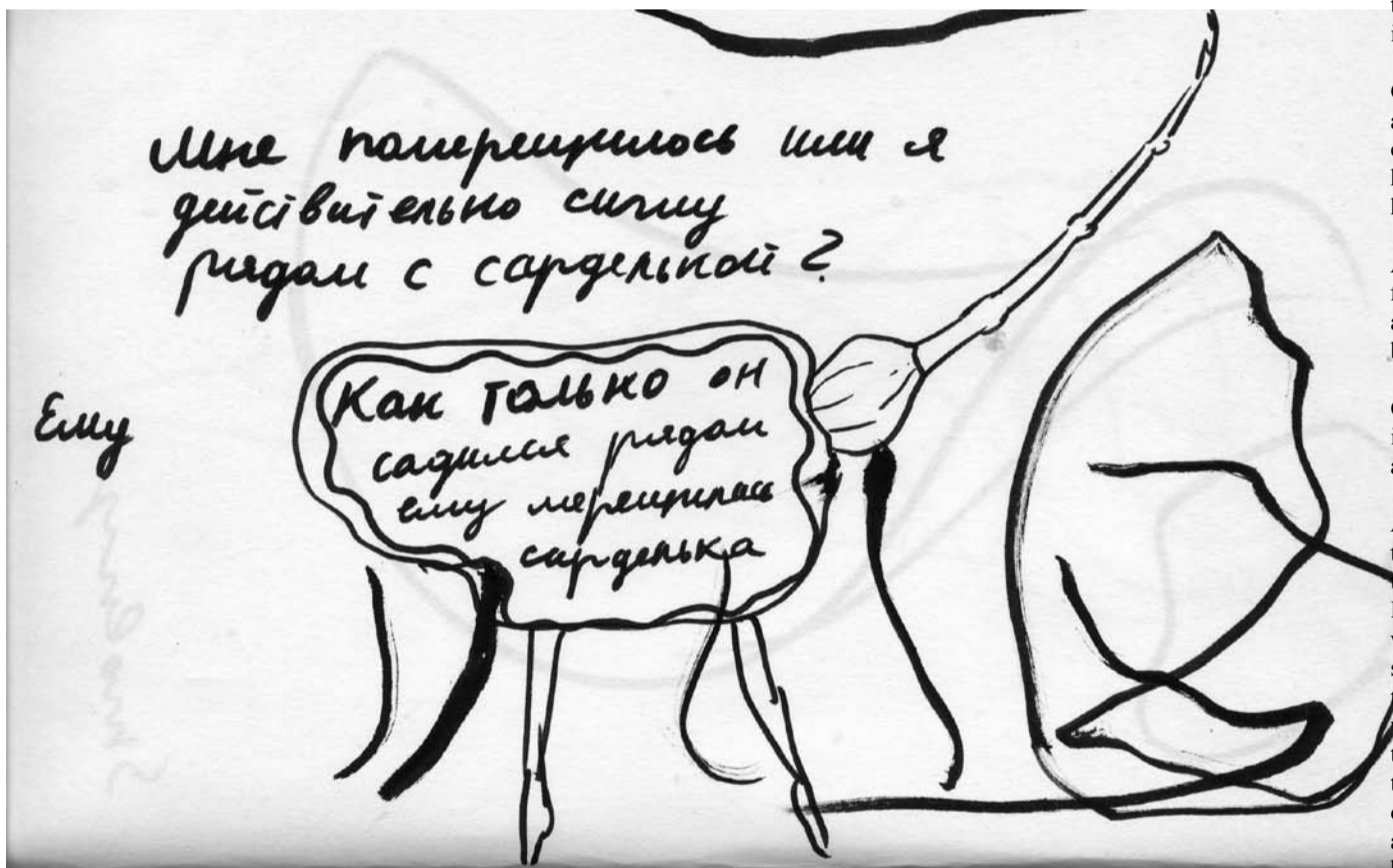 Мне померещилось или я
действительно сижу
рядом с сарделькой?
Ему
Как только он
садился рядом
ему мерещилась
сарделька